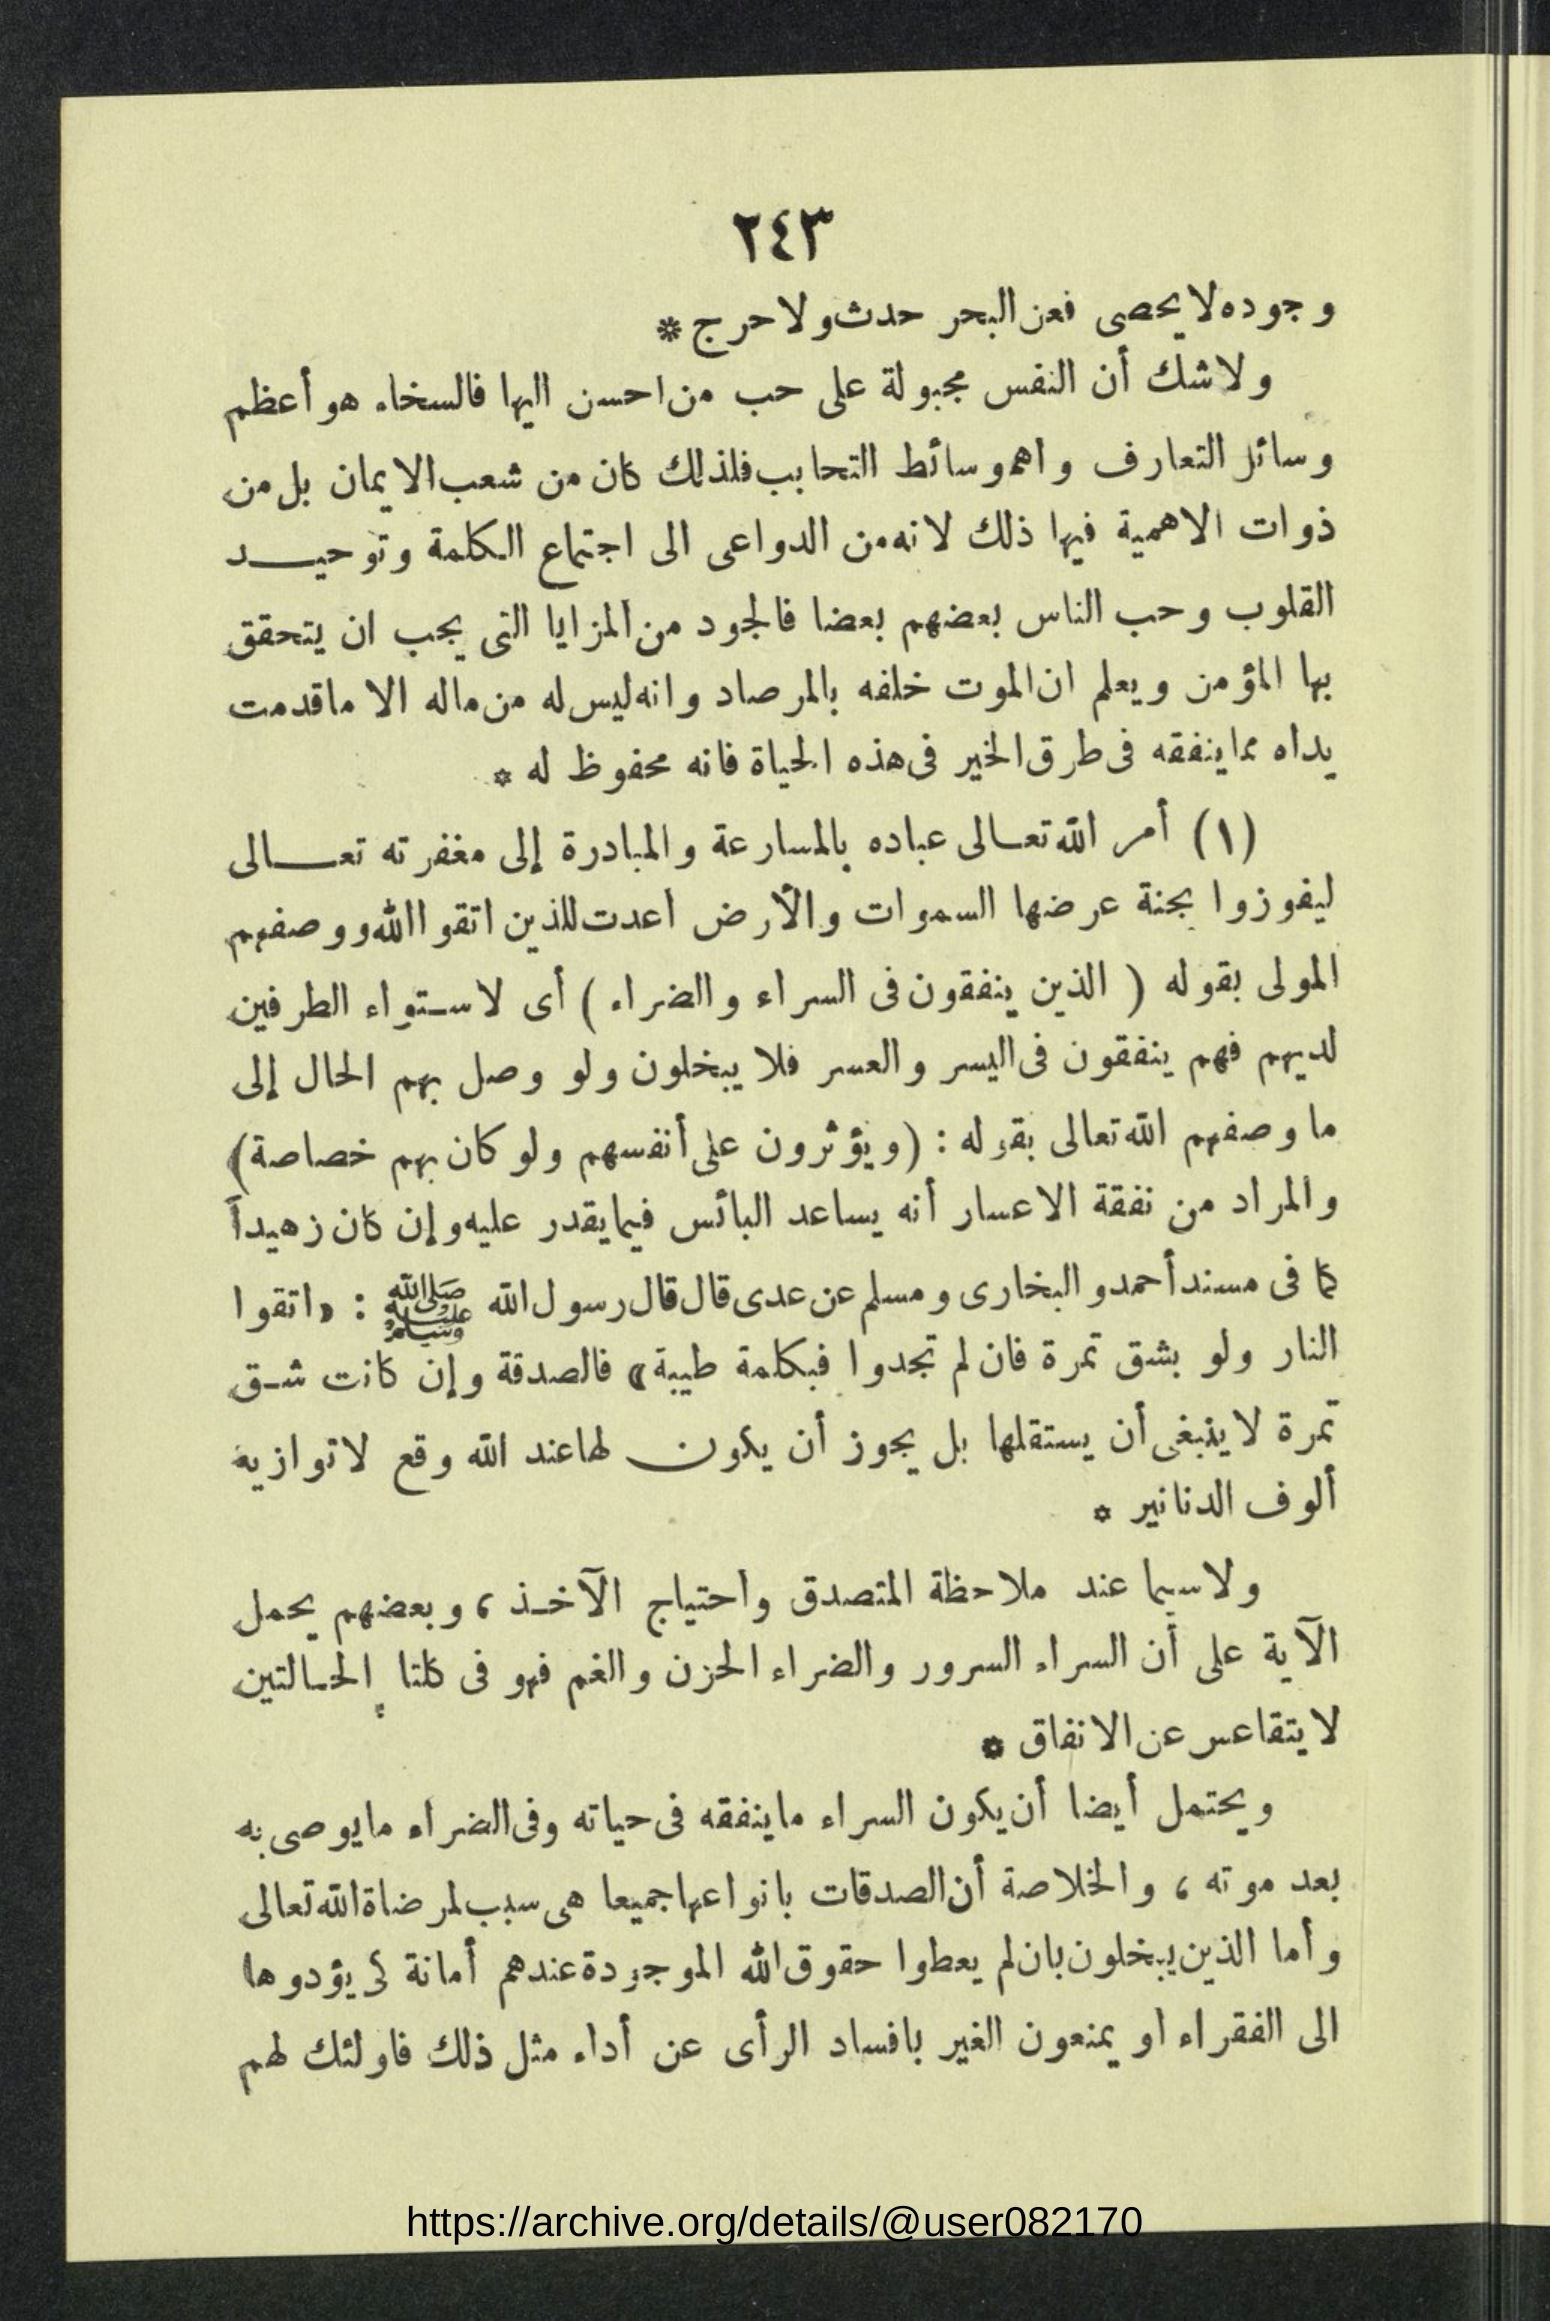 ٢٤٣
وجوده لا يحصى فعن البحر حدث ولا حرج *
ولا شك أن النفس مجبولة على حب من احسن اليها فالسخاء هو أعظم
وسائل التعارف واهم وسائط التحابب فلذلك كان من شعب الايمان بل من
ذوات الاهمية فيها ذلك لانه من الدواعى الى اجتماع الكلمة وتوحيـــد
القلوب وحب الناس بعضهم بعضا فالجود من المزايا التى يجب ان يتحقق
بها المؤمن ويعلم ان الموت خلفه بالمرصاد وانه ليس له من ماله الا ما قدمت
يداه مما ينفقه فى طرق الخير فى هذه الحياة فانه محفوظ له *
(١) أمر الله تعـالى عباده بالمسارعة والمبادرة إلى مغفرته تعـــالى
ليفوزوا بجنة عرضها السموات والأرض اعدت للذين اتقوا الله ووصفهم
المولى بقوله ( الذين ينفقون فى السراء والضراء ) أى لاستواء الطرفين
لديهم فهم ينفقون فى اليسر والعسر فلا يبخلون ولو وصل بهم الحال إلى
ما وصفهم الله تعالى بقوله : (ويؤثرون على أنفسهم ولو كان بهم خصاصة)
والمراد من نفقة الاعسار أنه يساعد البائس فيما يقدر عليه وإن كان زهيداً
كما فى مسند أحمد والبخارى ومسلم عن عدى قال قال رسول الله ﷺ : «اتقوا
النار ولو بشق تمرة فان لم تجدوا فبكلمة طيبة» فالصدقة وإن كانت شـق
تمرة لا ينبغى أن يستقلها بل يجوز أن يكون لها عند الله وقع لا توازيه
ألوف الدنانير *
ولا سيما عند ملاحظة المتصدق واحتياج الآخـذ ، وبعضهم يحمل
الآية على أن السراء السرور والضراء الحزن والغم فهو فى كلتا الحـالتين
لا يتقاعس عن الانفاق *
ويحتمل أيضا أن يكون السراء ما ينفقه فى حياته وفى الضراء ما يوصى به
بعد موته ، والخلاصة أن الصدقات بانواعها جميعا هى سبب لمرضاة الله تعالى
وأما الذين يبخلون بان لم يعطوا حقوق الله الموجودة عندهم أمانة كى يؤدوها
الى الفقراء او يمنعون الغير بافساد الرأى عن أداء مثل ذلك فاولئك لهم
https://archive.org/details/@user082170